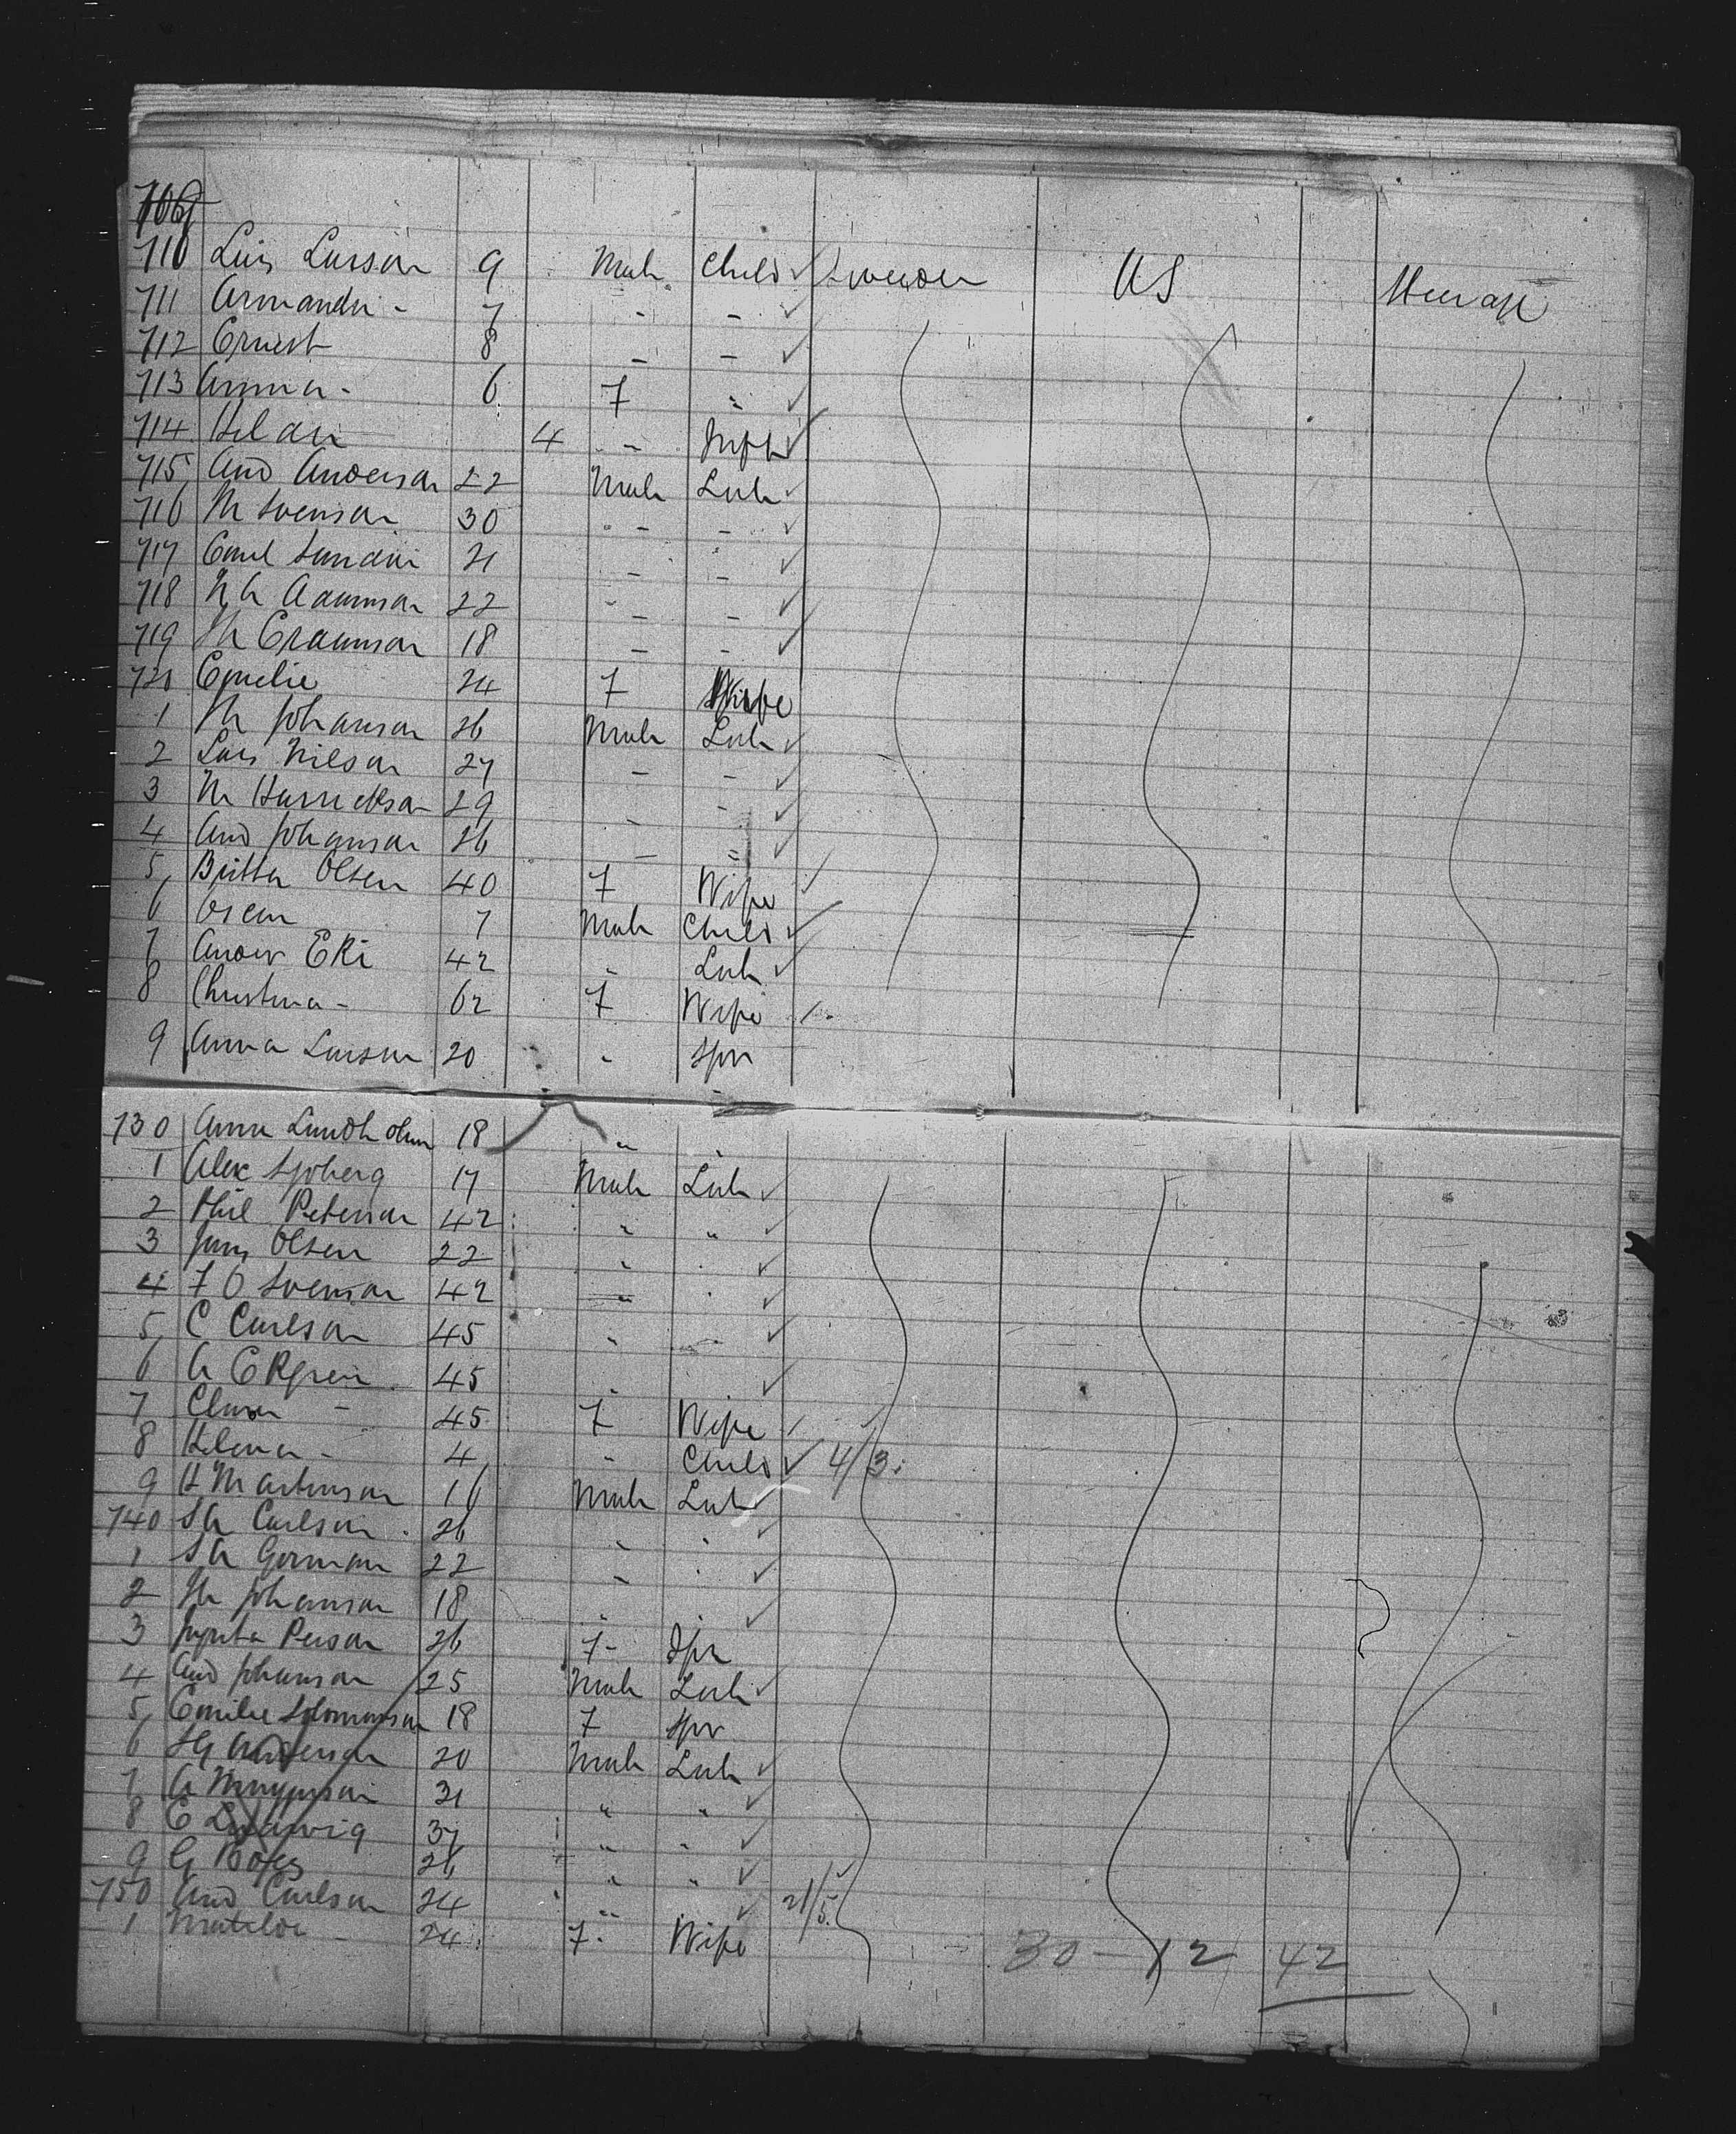 709
710 Lars Larson 9 Male Child ✓ Sweden US Steerage
711 Armanda - 7 - - ✓
712 Ernest 8 - - ✓
713 Anna - 6 F " ✓
714 4 - Inft ✓
715 And Anderson 22 Male Lab ✓
716 M Svenson 30 - - ✓
717 Carl Sundin 21 - - ✓
718 22 - - ✓
719 18 - - ✓
720 Emelie 24 F Wife
1 Johanson 26 Male Lab ✓
2 Lars Nilson 27 - - ✓
3 29 - - ✓
4 And Johanson 26 - = ✓
5 Britta Olsen 40 F Wife ✓
6 Oscar 7 Male Child ✓
7 42 " Lab ✓
8 Christina - 62 F Wife
9 Anna Larson 20 " Spr
730 Anna Lundholm 18 " "
1 Alex Sjoberg 17 Male Lab ✓
2 Peterson 42 " " ✓
3 Jans Olsen 22 " " ✓
4 F O Svenson 42 " " ✓
5 C Carlson 45 " " ✓
6 A Ekgren 45 " " ✓
7 - 45 F Wife ✓
8 Helena - 4 " Child ✓ 4/3
9 H Martinson 16 Male Lab ✓
740 Carlson 26 " " ✓
1 S A Gorman 22 " " ✓
2 Johanson 18 " " ✓
3 Person 26 F - Spr
4 And Johanson 25 Male Lab ✓
5 Emilie Solomonson 18 F Spr
6 Anderson 20 Male Lab ✓
7 A 21 " " ✓
8 E Ludwig 37 " " ✓
9 G 26 " " ✓
750 And Carlson 24 " ✓ 21/5
1 Matilda - 24 F Wife 30 - 12 42